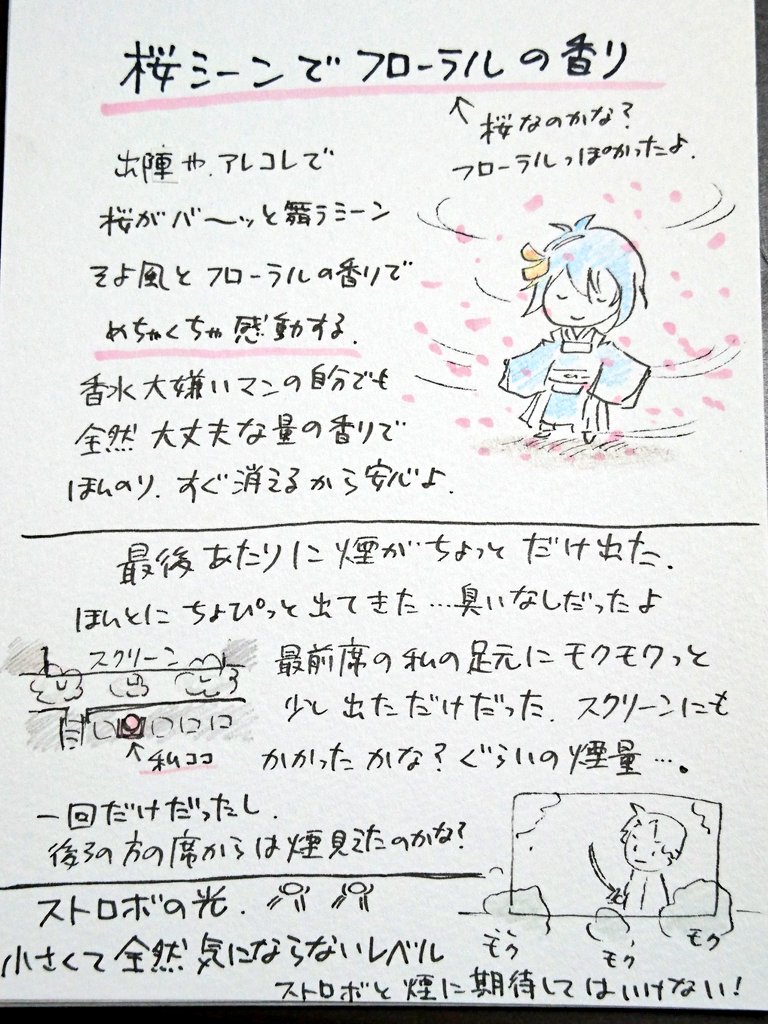 桜シーンでフローラルの香り
↑桜なのかな?
フローラルっぽかったよ.
出陣や、アレコレで
桜がバ〜ッと舞うシーン
そよ風とフローラルの香りで
めちゃくちゃ感動する.
香水大嫌いマンの自分でも
全然大丈夫な量の香りで
ほんのり、すぐ消えるから安心よ.
最後あたりに煙がちょっとだけ出た.
ほんとにちょぴっと出てきた…臭いなしだったよ
スクリーン
↑私ココ
最前席の私の足元にモクモクっと
少し出ただけだった.スクリーンにも
かかったかな?ぐらいの煙量…。
一回だけだったし.
後ろの方の席からは煙見えたのかな?
モク
モク
モク
ストロボの光.
小さくて全然気にならないレベル
ストロボと煙に期待してはいけない!